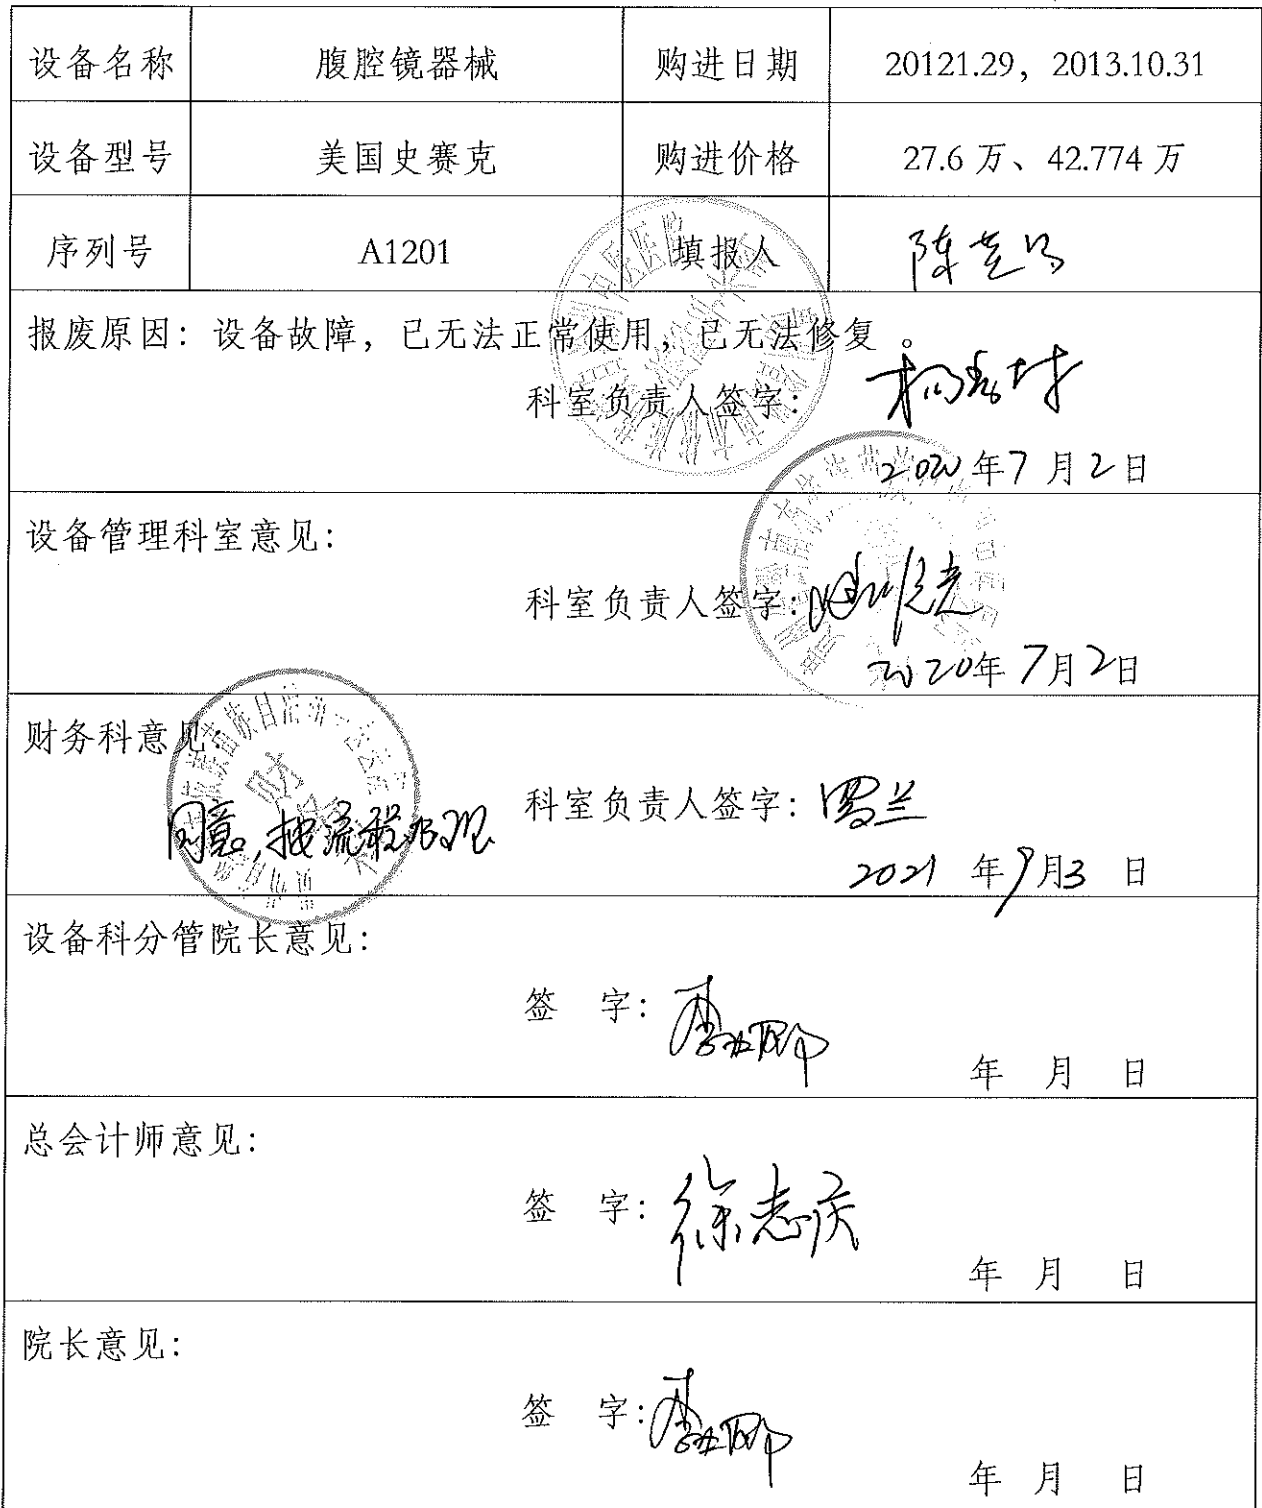 设备名称 腹腔镜器械 购进日期 20121.29，2013.10.31
设备型号 美国史赛克 购进价格 27.6 万、42.774 万
序列号 A1201 填报人
报废原因：设备故障，已无法正常使用，已无法修复 。
科室负责人签字：
2020 年 7 月 2 日
设备管理科室意见：
科室负责人签字：
2020年 7月 2日
财务科意见：
同意，按流程办理
科室负责人签字：罗兰
2021 年 9月3 日
设备科分管院长意见：
签 字：
年 月 日
总会计师意见：
签 字：徐志庆
年 月 日
院长意见：
签 字：
年 月 日